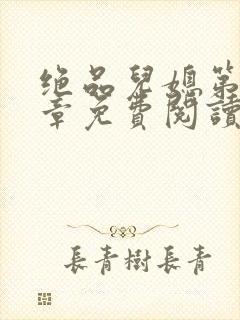 绝品兒媳第
章免費閱讀
長青樹長青